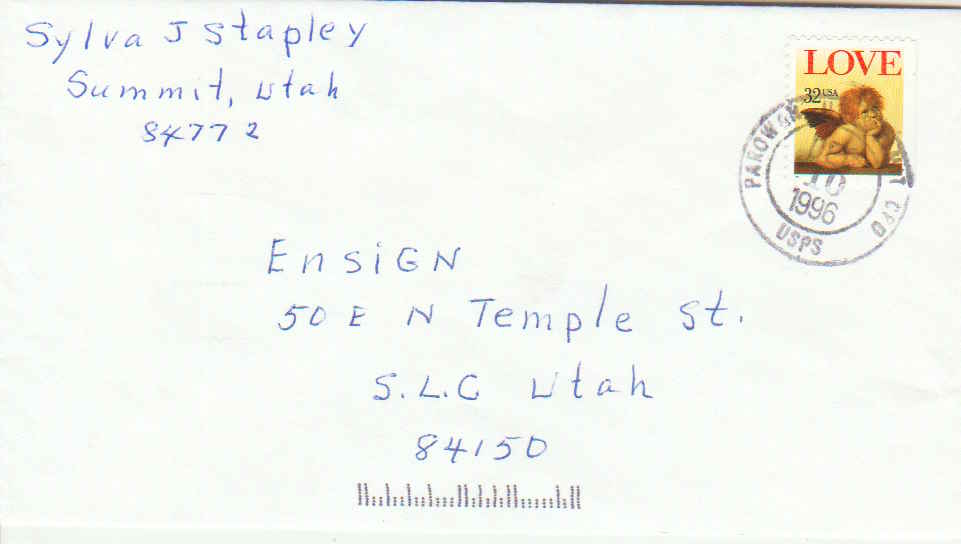 Sylva J Stapley
Summit, Utah
84772
LOVE
32 USA
PAROWAN
10
1996
USPS
CPO
EnSiGN
50 E N Temple St.
S.L.C Utah
84150